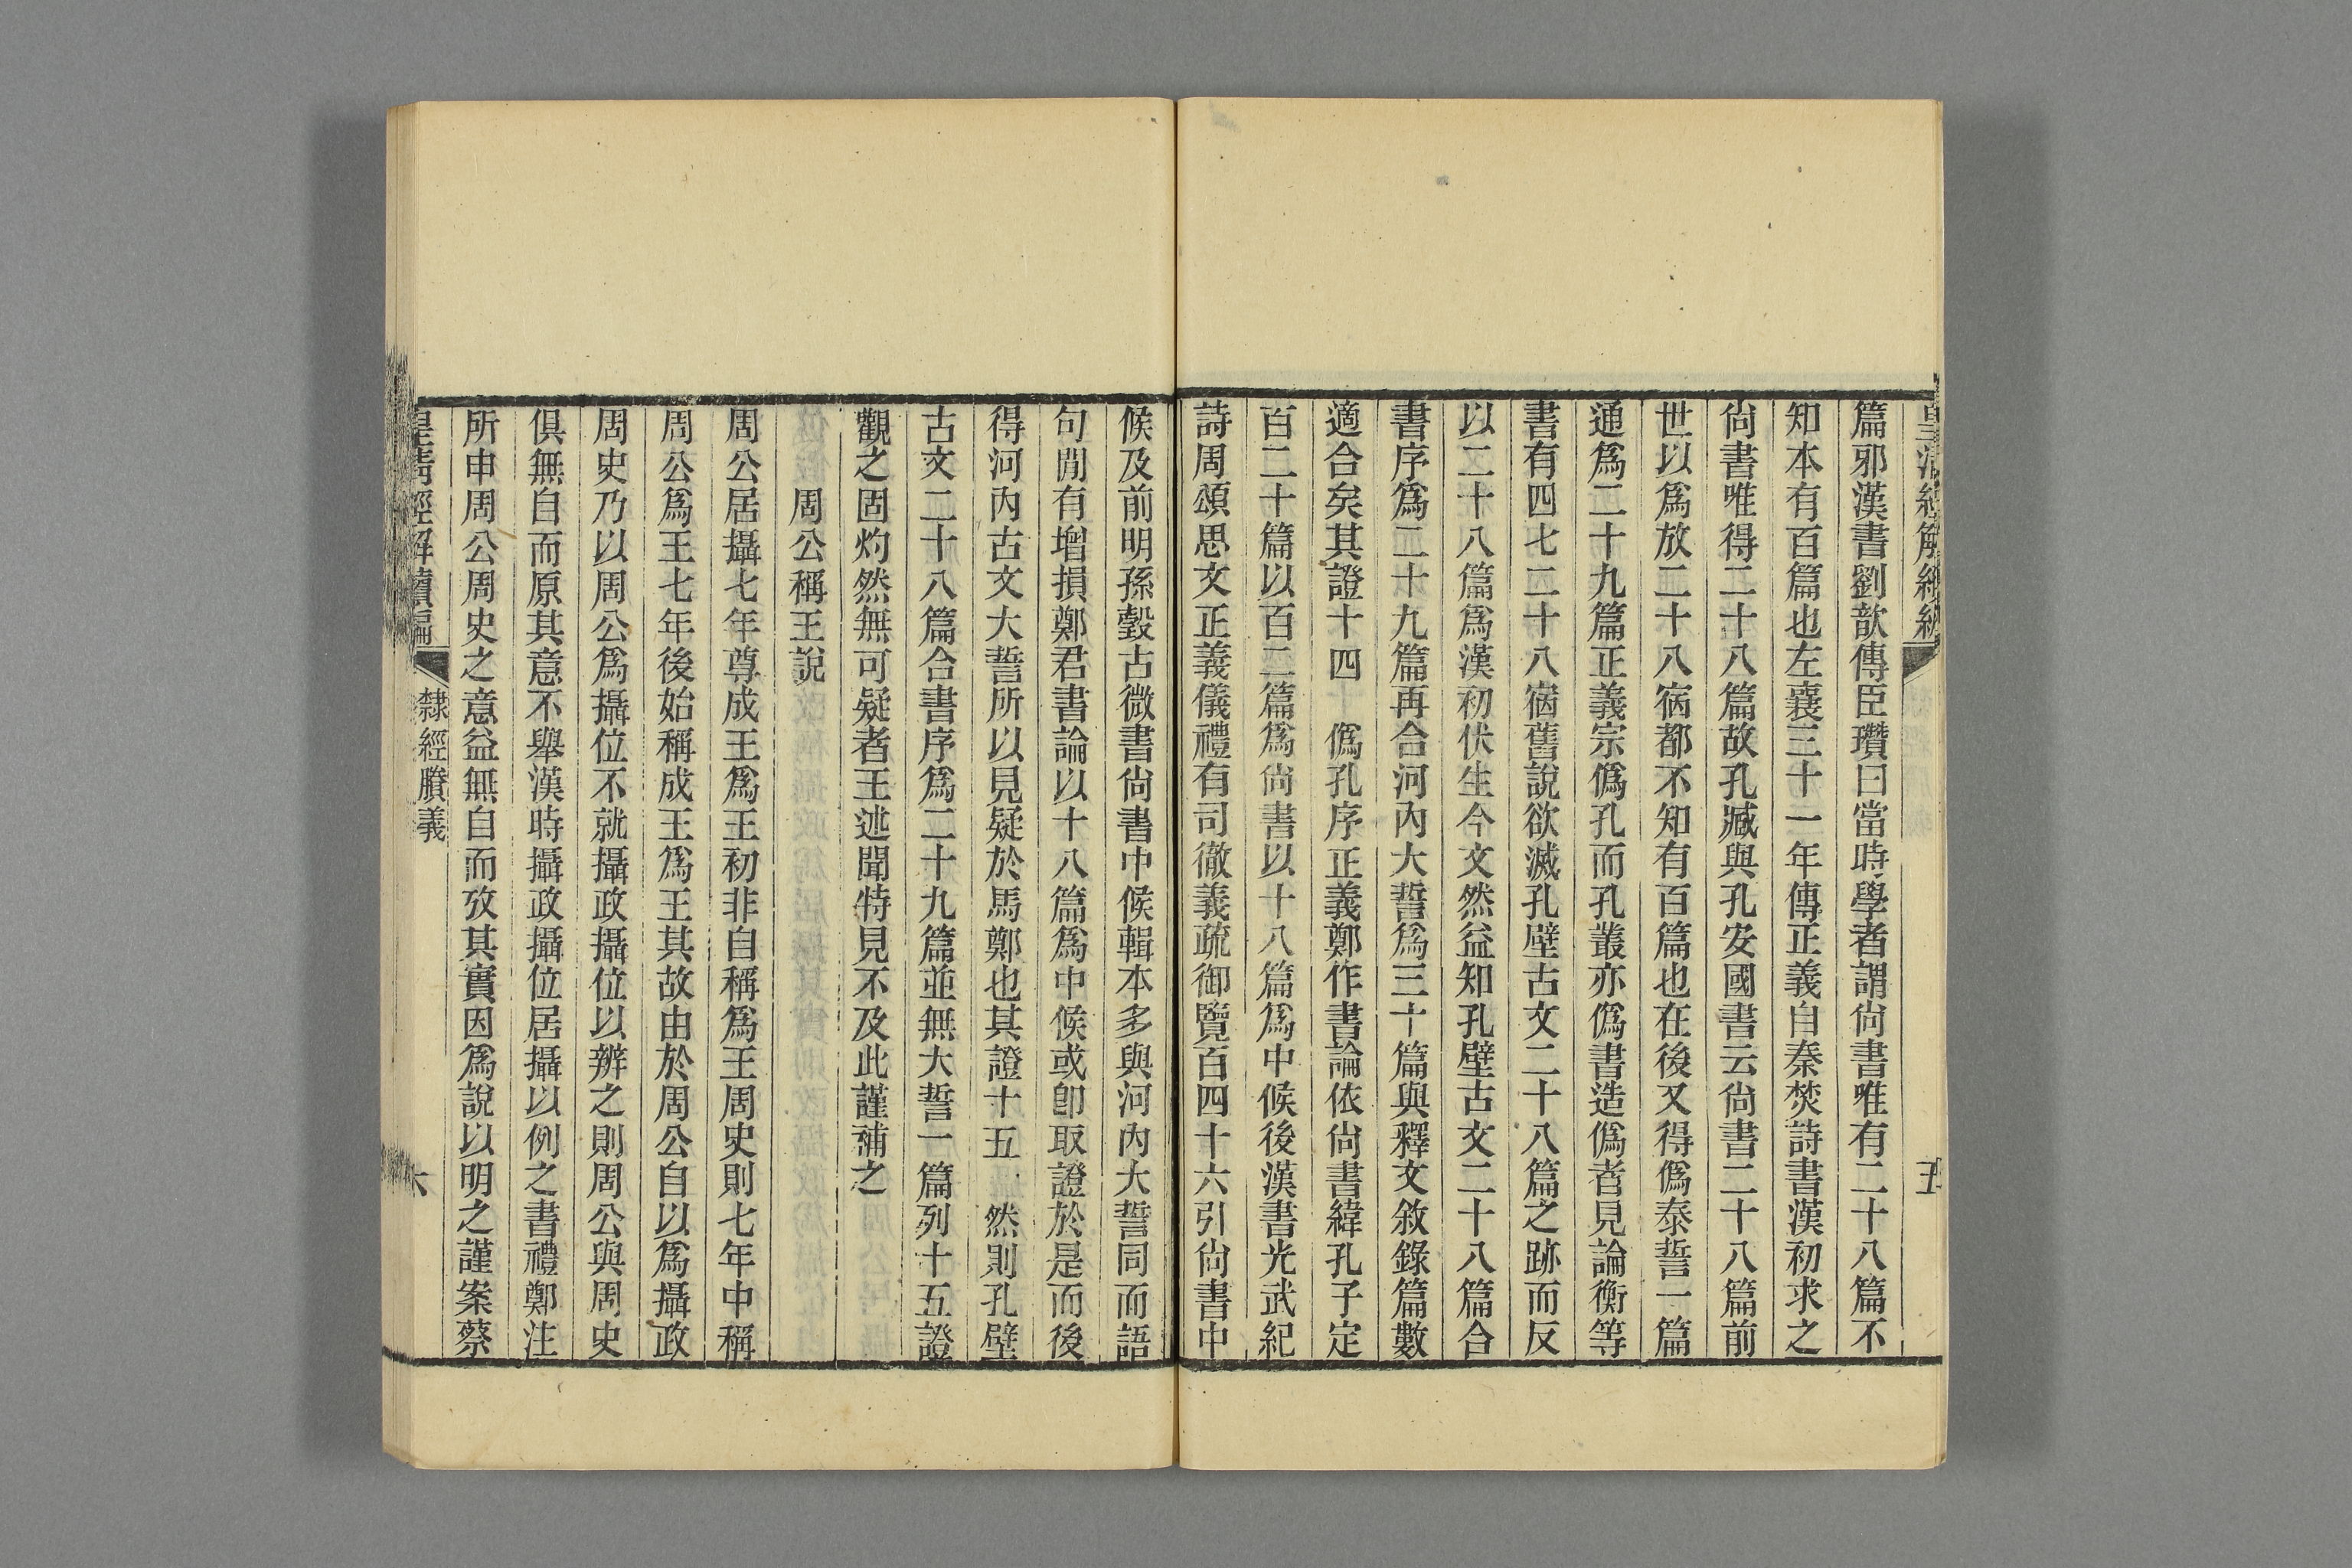 篇邪漢書劉歆傳臣瓚曰當時學者謂尙書唯有二十八篇不
知本有百篇也左襄三十一年傳正義自秦焚詩書漢初求之
尙書唯得二十八篇故孔臧與孔安國書云尙書二十八篇前
世以爲放二十八宿都不知有百篇也在後又得僞泰誓一篇
通爲二十九篇正義宗僞孔而孔叢亦僞書造僞者見論衡等
書有四七二十八宿舊說欲滅孔壁古文二十八篇之跡而反
以二十八篇爲漢初伏生今文然益知孔壁古文二十八篇合
書序爲二十九篇再合河內大誓爲三十篇與釋文敘錄篇數
適合矣其證十四 僞孔序正義鄭作書論依尙書緯孔子定
百二十篇以百二篇爲尙書以十八篇爲中候後漢書光武紀
詩周頌思文正義儀禮有司徹義疏御覽百四十六引尙書中
候及前明孫瑴古微書尙書中候輯本多與河內大誓同而語
句閒有增損鄭君書論以十八篇爲中候或卽取證於是而後
得河內古文大誓所以見疑於馬鄭也其證十五 然則孔壁
古文二十八篇合書序爲二十九篇並無大誓一篇列十五證
觀之固灼然無可疑者王述聞特見不及此謹補之
周公稱王說
周公居攝七年尊成王爲王初非自稱爲王周史則七年中稱
周公爲王七年後始稱成王爲王其故由於周公自以爲攝政
周史乃以周公爲攝位不就攝政攝位以辨之則周公與周史
俱無自而原其意不舉漢時攝政攝位居攝以例之書禮鄭注
所申周公周史之意益無自而攷其實因爲說以明之謹案蔡
皇清經解續編
隸經賸義
六